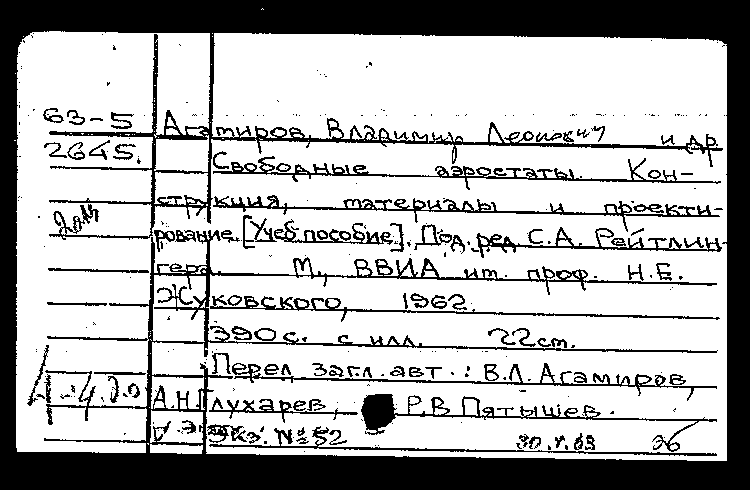 63-5 Агамиров, Владимир Леонович и др
2645. Свободные аэростаты. Кон-
струкция, материалы и проекти-
рование. [Учеб. пособие]. Под. ред. С.А. Рейтлин-
гера. М., ВВИА им. проф. Н.Е.
Жуковского, 1962.
390 с. с илл. 22 см.
Перед загл. авт.: В.Л. Агамиров,
А.Н. Глухарев, Р.В Пятышев.
Экз. № 52 30.V.63